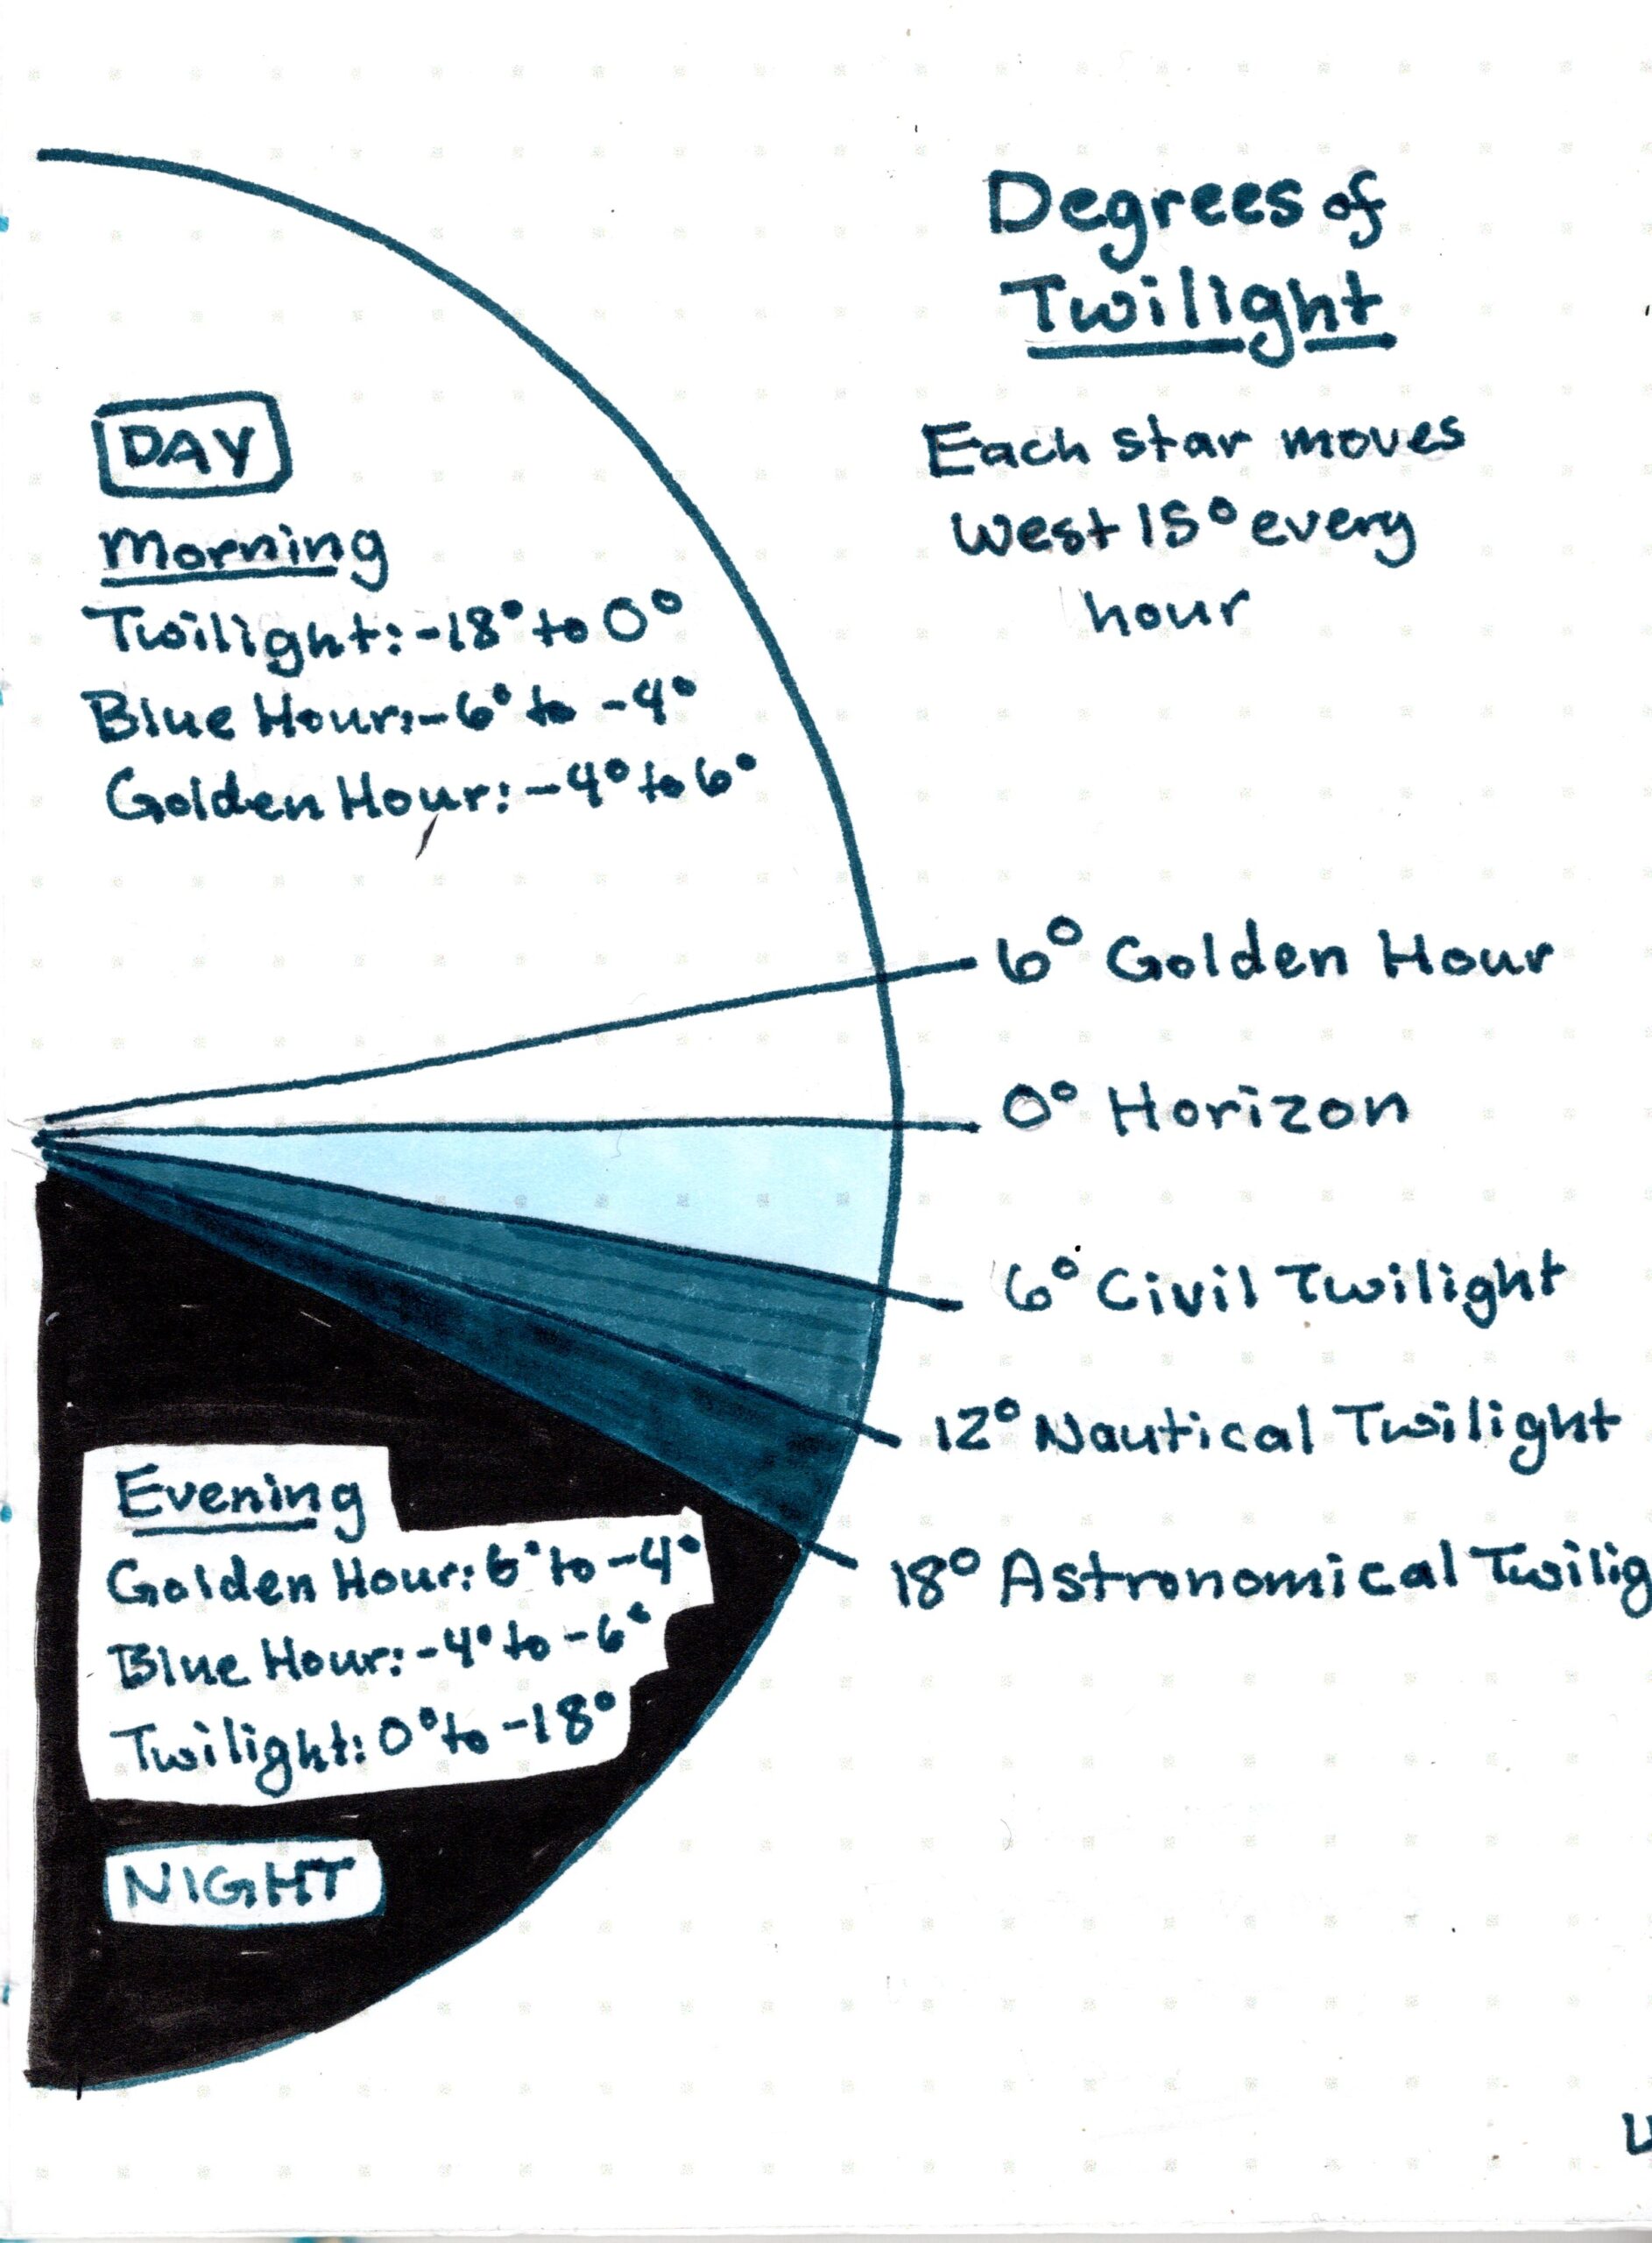 Degrees of
Twilight
Each star moves
West 15° every
hour
DAY
Morning
Twilight: -18° to 0°
Blue Hour: -6° to -4°
Golden Hour: -4° to 6°
6° Golden Hour
0° Horizon
6° Civil Twilight
12° Nautical Twilight
18° Astronomical Twilig
Evening
Golden Hour: 6° to -4°
Blue Hour: -4° to -6°
Twilight: 0° to -18°
NIGHT